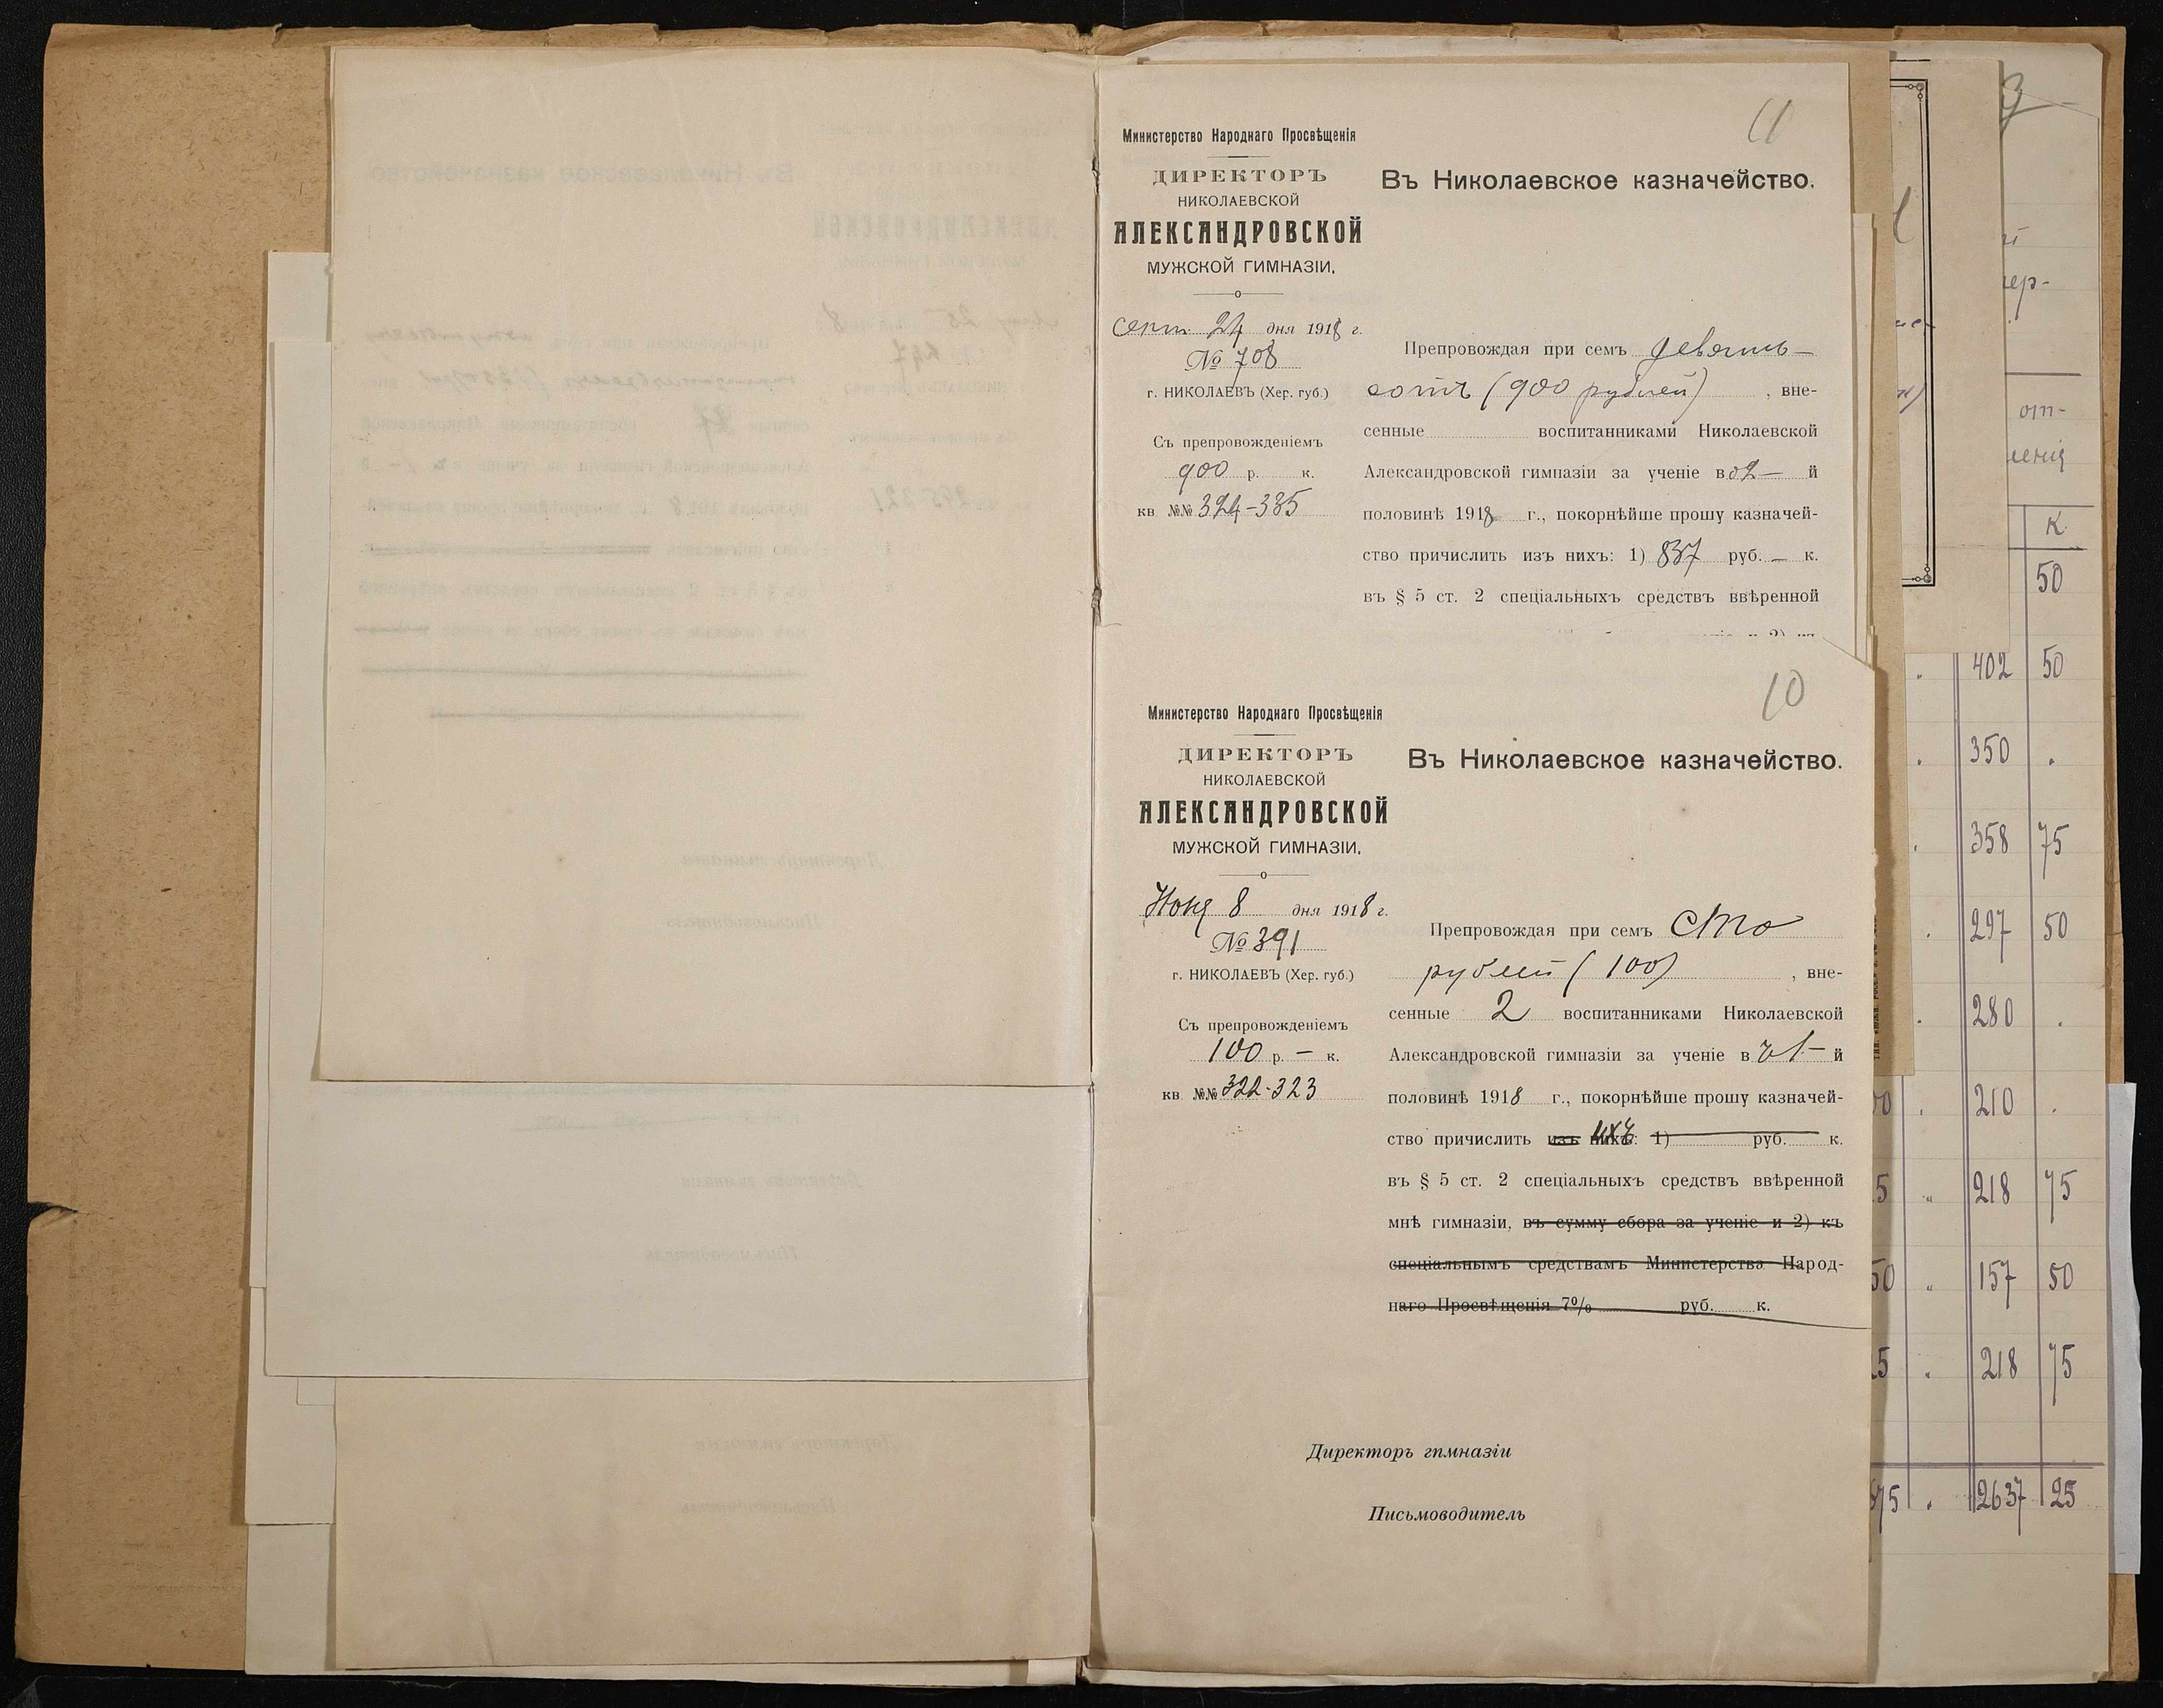 11
Министерство Народнаго Просвѣщенія
ДИРЕКТОРЪ
НИКОЛАЕВСКОЙ
АЛЕКСАНДРОВСКОЙ
МУЖСКОЙ ГИМНАЗІИ.
Сент. 24 дня 1918 г.
№ 708
г. НИКОЛАЕВЪ (Хер. губ.)
Съ препровожденіемъ
900 р. к.
кв. №№ 324-335
Въ Николаевское казначейство.
Препровождая при семъ девять-
сотъ (900 рублей), вне-
сенные воспитанниками Николаевской
Александровской гимназіи за ученіе во 2— й
половинѣ 1918 г., покорнѣйше прошу казначей-
ство причислить изъ нихъ: 1) 837 руб. — к.
въ § 5 ст. 2 спеціальныхъ средствъ ввѣренной
10
Министерство Народнаго Просвѣщенія
ДИРЕКТОРЪ
НИКОЛАЕВСКОЙ
АЛЕКСАНДРОВСКОЙ
МУЖСКОЙ ГИМНАЗІИ.
8 дня 1918 г.
№ 391
г. НИКОЛАЕВЪ (Хер. губ.)
Съ препровожденіемъ
100 р. — к.
кв. №№ 322-323
Въ Николаевское казначейство.
Препровождая при семъ сто
рублей (100), вне-
сенные 2 воспитанниками Николаевской
Александровской гимназіи за ученіе въ 1— й
половинѣ 1918 г., покорнѣйше прошу казначей-
ство причислить изъ нихъ: ихъ 1) руб. к.
въ § 5 ст. 2 спеціальныхъ средствъ ввѣренной
мнѣ гимназіи, въ сумму сбора за ученіе и 2) къ
спеціальнымъ средствамъ Министерства Народ-
наго Просвѣщенія 7% руб. к.
Директоръ гимназіи
Письмоводитель
от-
ленія
К.
50
402 50
350 .
358 75
297 50
280 .
210 .
218 75
157 50
218 75
2637 25